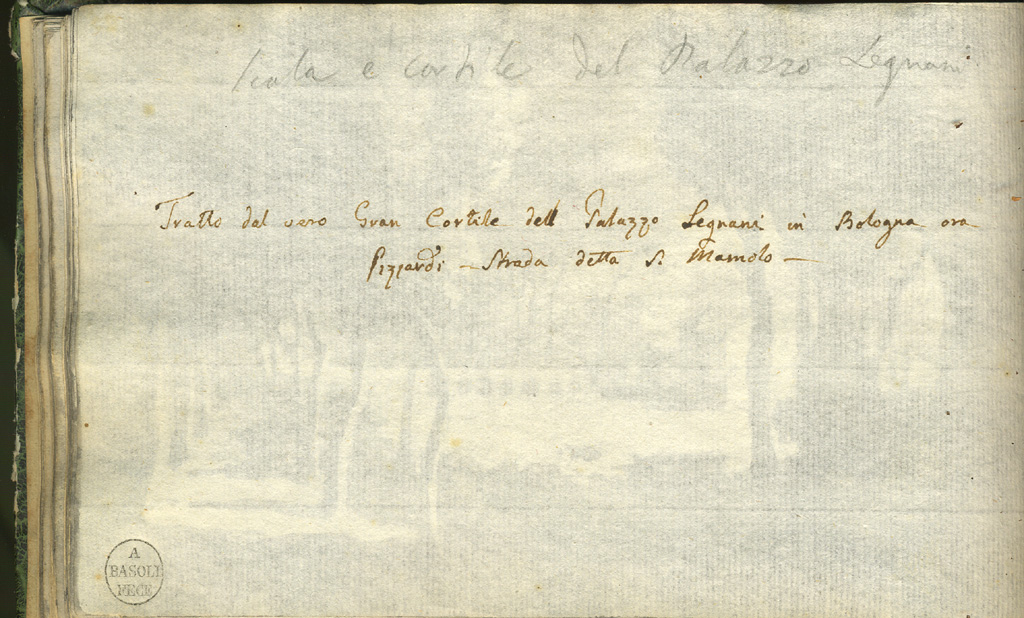 Scala e cortile del Palazzo Legnani
Tratto dal vero Gran Cortile dell Palazzo Legnani in Bologna ora
Pizzardi – Strada detta S. Mamolo –
A
BASOLI
FECE